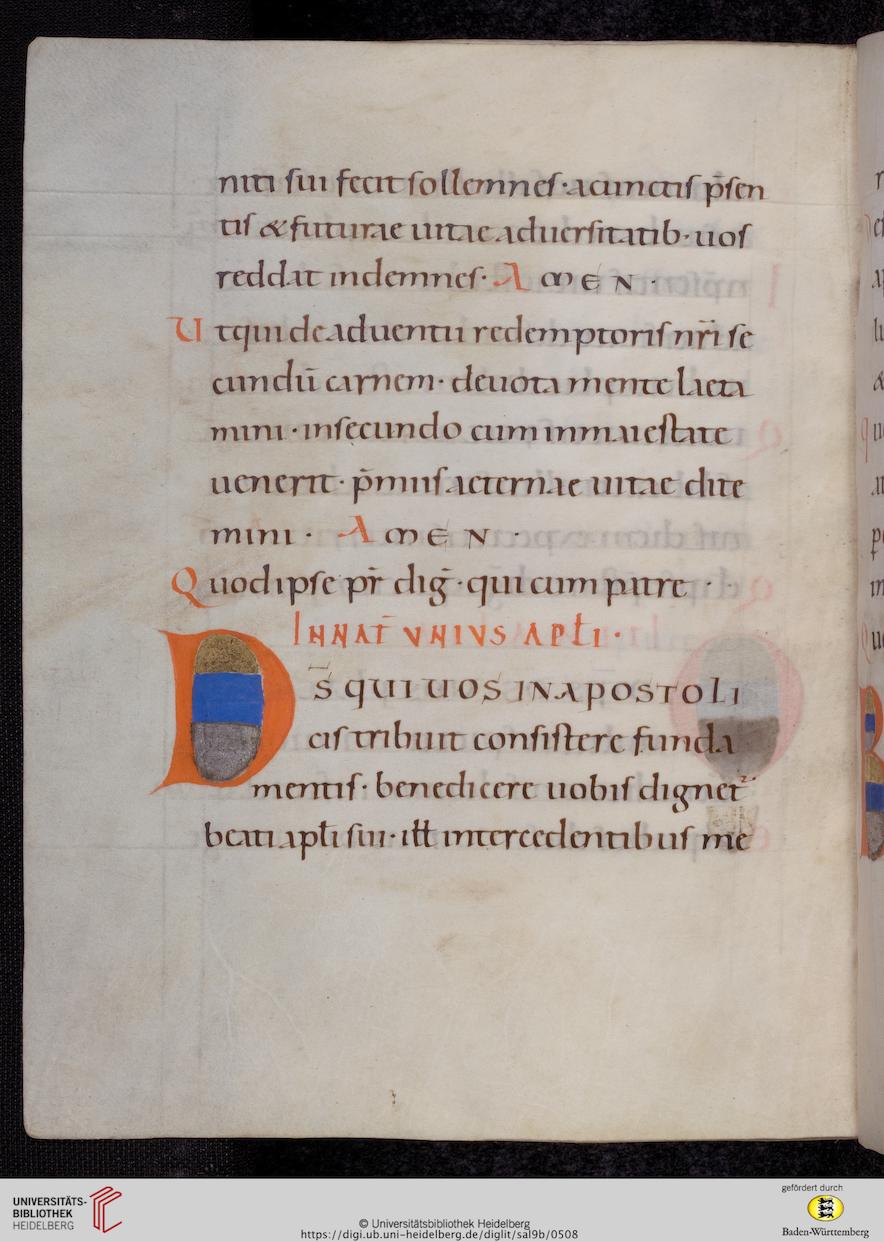 niti sui fecit sollemnes · acunctis p̄sen
tis & futurae uitae aduersitatib· uos
reddat indemnes· AMEN ·
Ut qui de aduentu redemptoris nr̄i se
cundū carnem· deuota mente laeta
mini · insecundo cum inmaiestate
uenerit · p̄miis aeternae uitae dite
mini · AMEN ·
Quod ipse pr̄ dig̅ · qui cum patre ·
IN NAT̄ VNIVS APƚI ·
DS̄ QUI UOS IN APOSTOLI
cis tribuit consistere funda
mentis· benedicere uobis dignet᷑
beati apƚi sui· iƚƚ intercedentibus me
UNIVERSITÄTS-
BIBLIOTHEK
HEIDELBERG
© Universitätsbibliothek Heidelberg
https://digi.ub.uni-heidelberg.de/diglit/sal9b/0508
gefördert durch
Baden-Württemberg